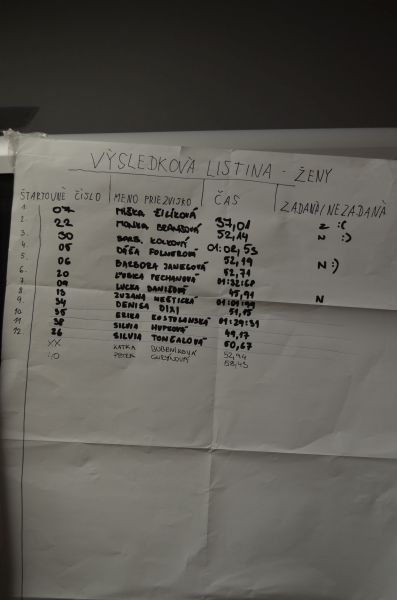 VÝSLEDKOVÁ LISTINA - ŽENY
ŠTARTOVNÉ ČÍSLO MENO PRIEZVISKO ČAS ZADANÁ/NEZADANÁ
1. 07 MIŠKA ŽILÍKOVÁ 37,01 Z :(
2. 22 MONIKA 52,14 N :)
3. 30 BARB. KOLKOVÁ 01:02,53
4. 05 DÁŠA 52,19
5. 06 BARBORA JANEGOVÁ 52,71 N :)
6. 20 ĽUBICA PECHANOVÁ 01:32:68
7. 09 LUCKA DANIŠOVÁ 45,91
8. 13 ZUZANA 01:01:99 N
9. 34 DENISA DIXI 51,15
10. 35 ERIKA KOSTOLANSKÁ 01:29:31
11. 38 SILVIA HUPKOVÁ 49,17
12. 26 SILVIA TONGALOVÁ 50,67
XX KATKA DUBENÍKOVÁ 52,94
40 58,45